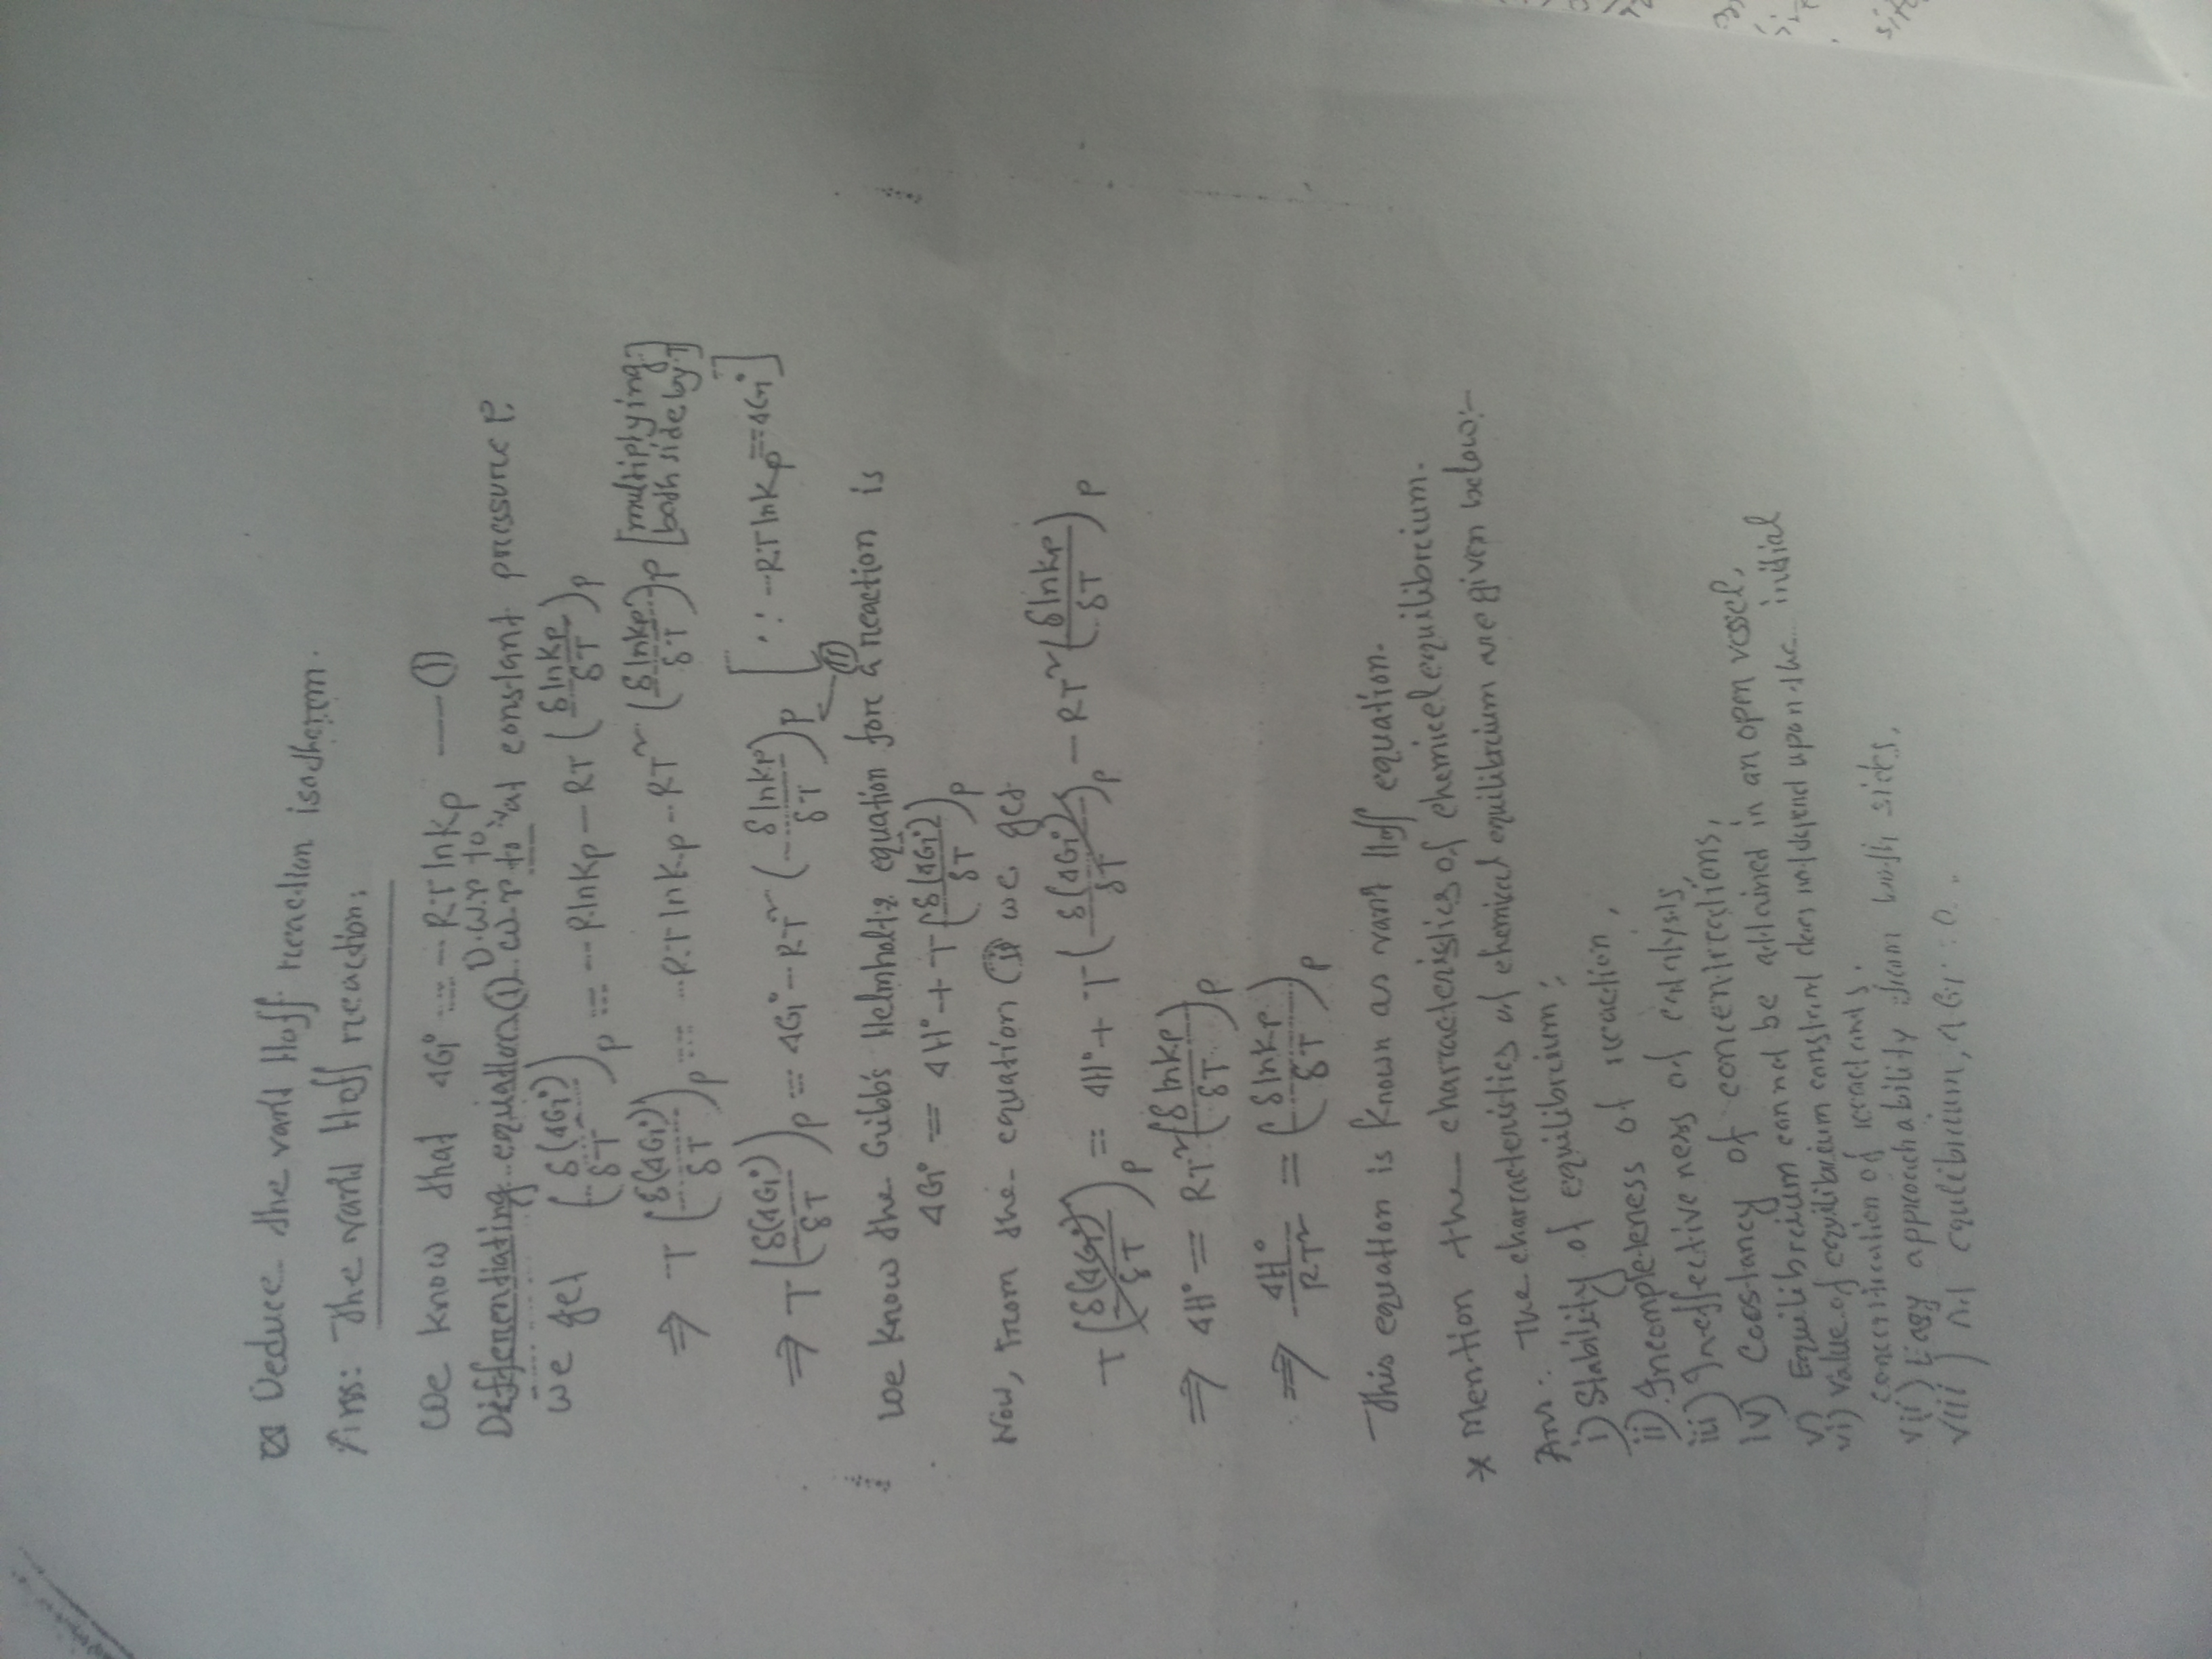 Deduce the van't Hoff reaction isotherem.
Ans: The van't Hoff reaction:
We know that ΔG° = -RT lnKp —(I)
D.w.r to
Differentiating equation (I) w.r to at constant pressure P.
we get (δ(ΔG°)/δT)p = -RlnKp - RT (δlnKp/δT)p
⇒ T(δ(ΔG°)/δT)p = -RT lnKp - RT² (δlnKp/δT)p [multiplying both side by T]
⇒ T(δ(ΔG°)/δT)p = ΔG° - RT² (δlnKp/δT)p [∵ -RT lnKp = ΔG°]
(II)
We know the Gibb's Helmholtz equation fore a reaction is
ΔG° = ΔH° + T(δ(ΔG°)/δT)p
Now, from the equation (II) we get
T(δ(ΔG°)/δT)p = ΔH° + T(δ(ΔG°)/δT)p - RT²(δlnKp/δT)p
⇒ ΔH° = RT²(δlnKp/δT)p
⇒ ΔH°/RT² = (δlnKp/δT)p
This equation is known as vant Hoff equation.
* Mention the characteristics of chemicel equilibreium.
Ans: The charcacteristics of chemical equilibrcium are given below:-
i) Stability of equilibreium;
ii) Incompleteness of reaction,
iii) Ineffectiveness of catalysts,
iv) Coostancy of concentrcations,
v) Equilibreium cannot be attained in an open vessel,
vi) Value of equilibrium constant does not depend upon the initial
concentrcation of reactants.
vii) Easy approachability from both sides,
viii) At equlibrium, ΔG = 0.